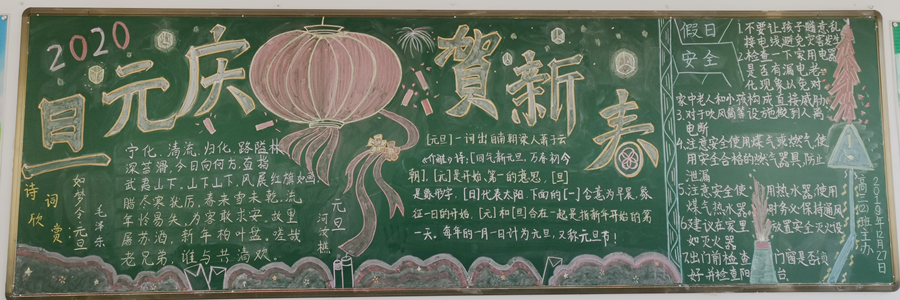 2020
庆元旦
賀新春
诗词欣赏:
如梦令·元旦
毛泽东
宁化、清流、归化,路隘林
深苔滑,今日向何方,直指
武夷山下,山下山下,风展红旗如画。
腊尽寒犹厉,春来雪未乾,流
年怜易失,为客取求安,故里
屠苏酒,新年柏叶盘,嗟哉
老兄弟,谁与共清欢。
元旦
[元旦]一词出自南朝梁人萧子云
《介雅》诗:[四气新元旦,万寿初今
朝],[元]是开始,第一的意思,[旦]
是象形字,[日]代表太阳,下面的[一]含意为平晨,象
征一日的开始,[元]和[旦]合在一起是指新年开始的第
一天,每年的一月一日计为元旦,又称元旦节!
假日
安全
1.不要让孩子随意乱
接电线避免灾害发生
2.检查一下家用电器
是否有漏电老
化现象以免对
家中老人和小孩构成直接威胁
3.对于吹风筒等设施做到人离
电断
4.注意安全使用煤气或燃气使
用安全合格的燃气器具,防止
泄漏
5.注意安全使用热水器,使用
煤气热水器时务必保持通风
6.建议在家里放置安全灭火设
如灭火器
7.出门前检查门窗是否锁
好并检查阳台
高三四班主办
2019年12月27日